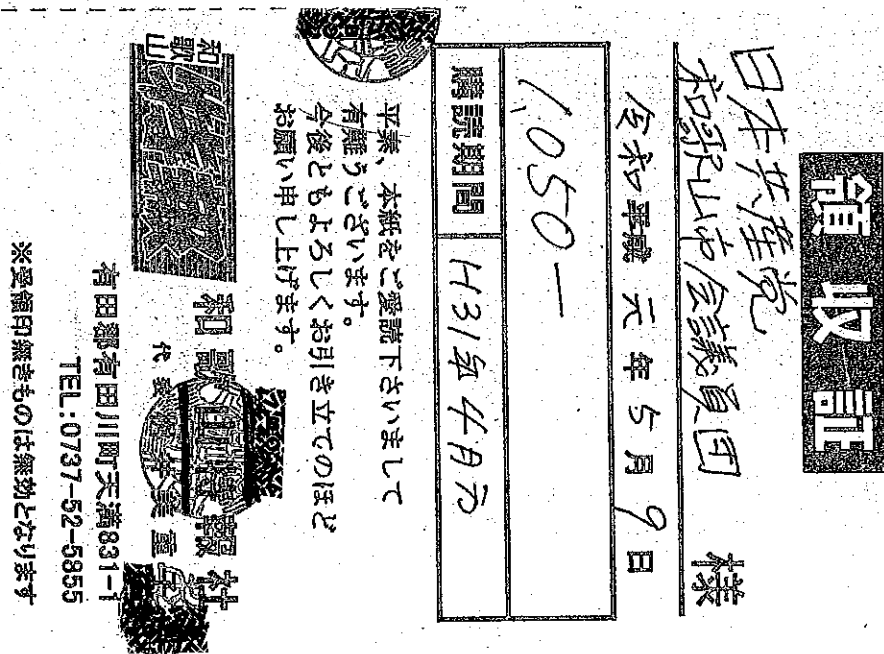 領収証
日本共産党
和歌山市会議員団 様
令和 平成 元年5月9日
1,050-
購読期間 H31年4月分
平素、本紙をご愛読下さいまして
有難うございます。
今後ともよろしくお引き立てのほど
お願い申し上げます。
和歌山
社
有田郡有田川町天満831-1
TEL:0737-52-5855
※受領印無きものは無効となります